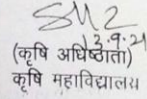 (कृषि अधिष्ठाता)
कृषि महाविद्यालय